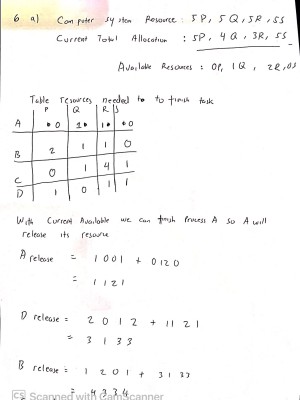 6 a) Computer system Resource : 5P, 5Q, 5R, 5S
Current Total Allocation : 5P, 4Q, 3R, 5S
Available Resources : 0P, 1Q, 2R, 0S
Table resources needed to to finish task
P Q R S
A 0 1 1 0
B 2 1 1 0
C 0 1 4 1
D 1 0 1 1
With Current Available we can finish Process A so A will
release its resource
A release = 1 0 0 1 + 0 1 2 0
= 1 1 2 1
D release = 2 0 1 2 + 1 1 2 1
= 3 1 3 3
B release = 1 2 0 1 + 3 1 3 3
= 4 3 3 4
CS Scanned with CamScanner